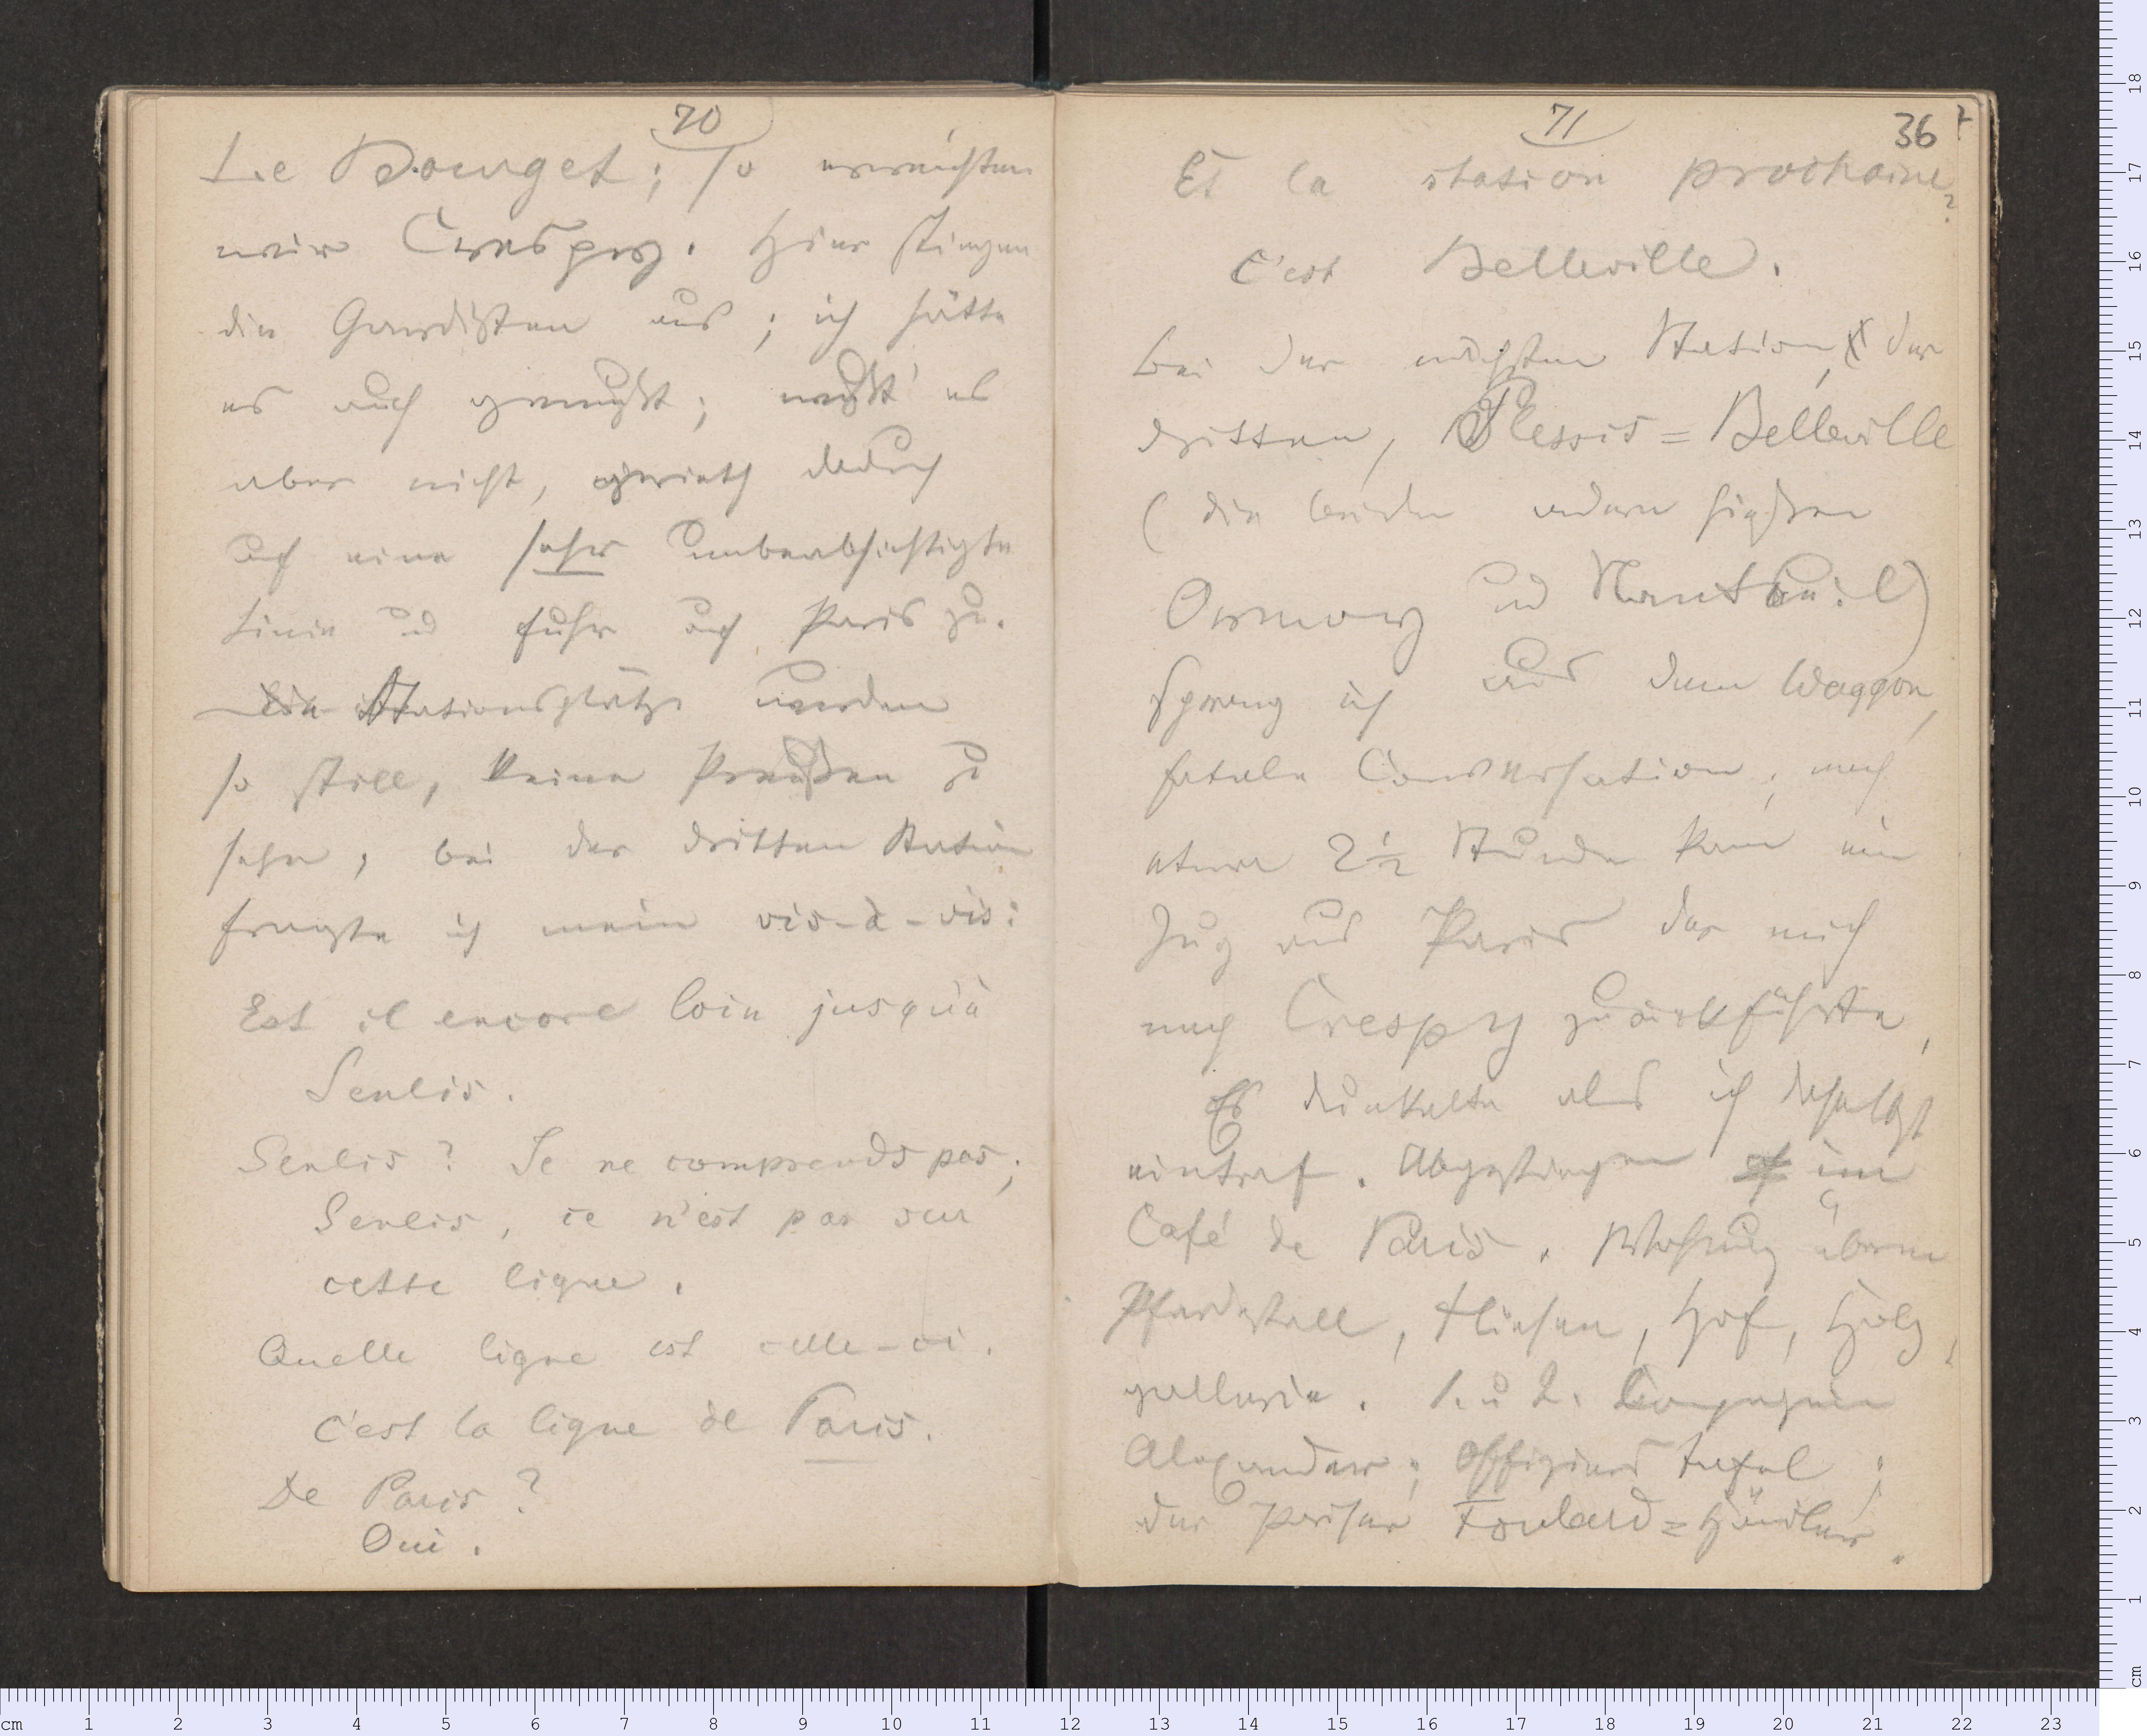 70
Le Bourget; so erreichten
wir Crespy. Hier stiegen
die Gardisten aus; ich hätte
es auch gemußt; wußt' es
aber nicht, gerieth dadurch
auf eine sehr unbeabsichtigte
Linie und fuhr auf Paris zu.
Die Stationsplätze wurden
so still, keine Preußen zu
sehn; bei der dritten Station
fragte ich mein vis-à-vis:
Est il encore loin jusqu'à
Senlis.
Senlis? Je ne comprends pas;
Senlis, ce n'est pas sur
cette ligne.
Quelle ligne est celle-ci.
C'est la ligne de Paris.
De Paris?
Oui.
71
36
Et la station prochaine?
C'est Belleville.
Bei der nächsten Station, der
dritten, Plessis=Belleville
(die beiden andern hießen
Ormoy und Nanteuil)
sprang ich aus dem Waggon,
fatale Conversation; nach
etwa 2½ Stunde kam ein
Zug aus Paris der mich
nach Crespy zurückführte,
Es dunkelte als ich daselbst
eintraf. Abgestiegen im
Café de Paris. Wohnung überm
Pferdestall, Fliesen, Hof, Holz,
gallerie. 1. u 2. Compagnie
Alexander; Offizierstafel;
der Pariser Foulard=Händler.